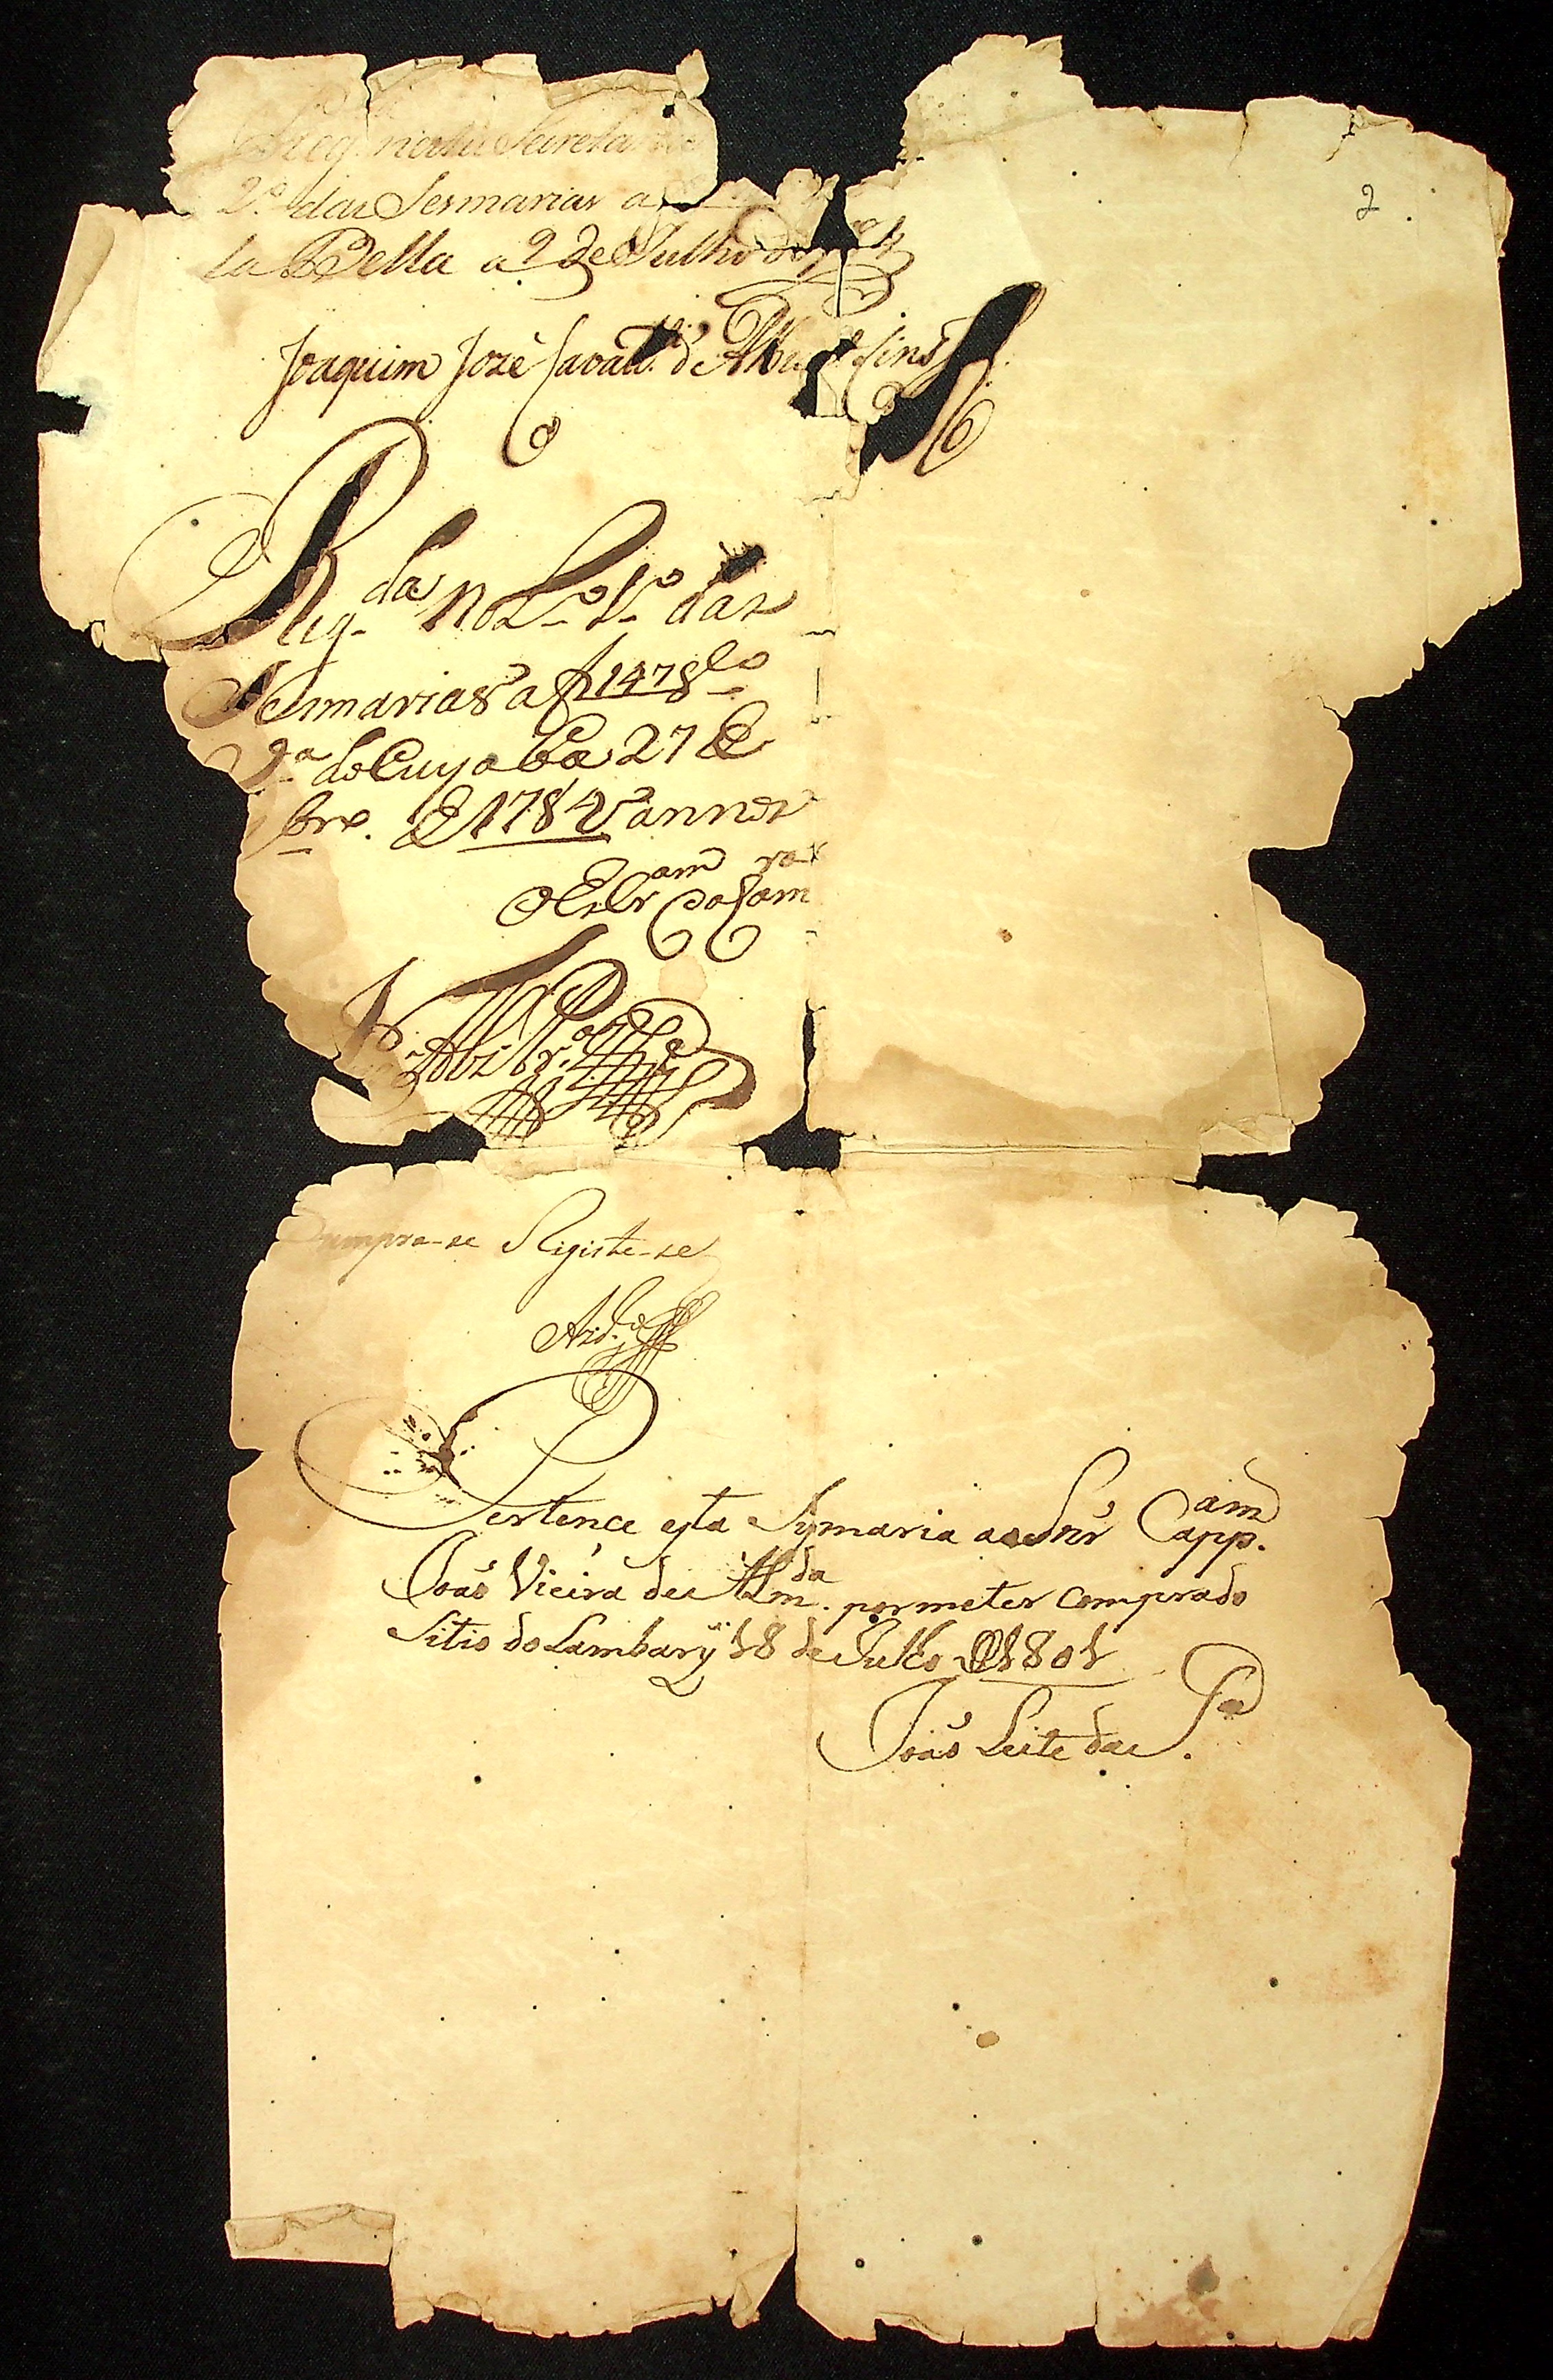 2
Reg. nesta Secretaria
2.º das Sesmarias a
la Bella a 9 de Julho de
Joaquim Jozé Cavalc.ti d'Albuq.e Lins
Reg.da no L.º 1.º das
Sesmarias a f 147
V.a do Cuyaba 27 de
bro. de 1784 annos
O Escr.am da Cam.ra
Cumpra-se Registe-se
Pertence esta Symaria ao Snr Capp.am
João Vieira de Alm.da por me ter comprado
Sitio do Lambarÿ 18 de Julho de 1801
João Leite da